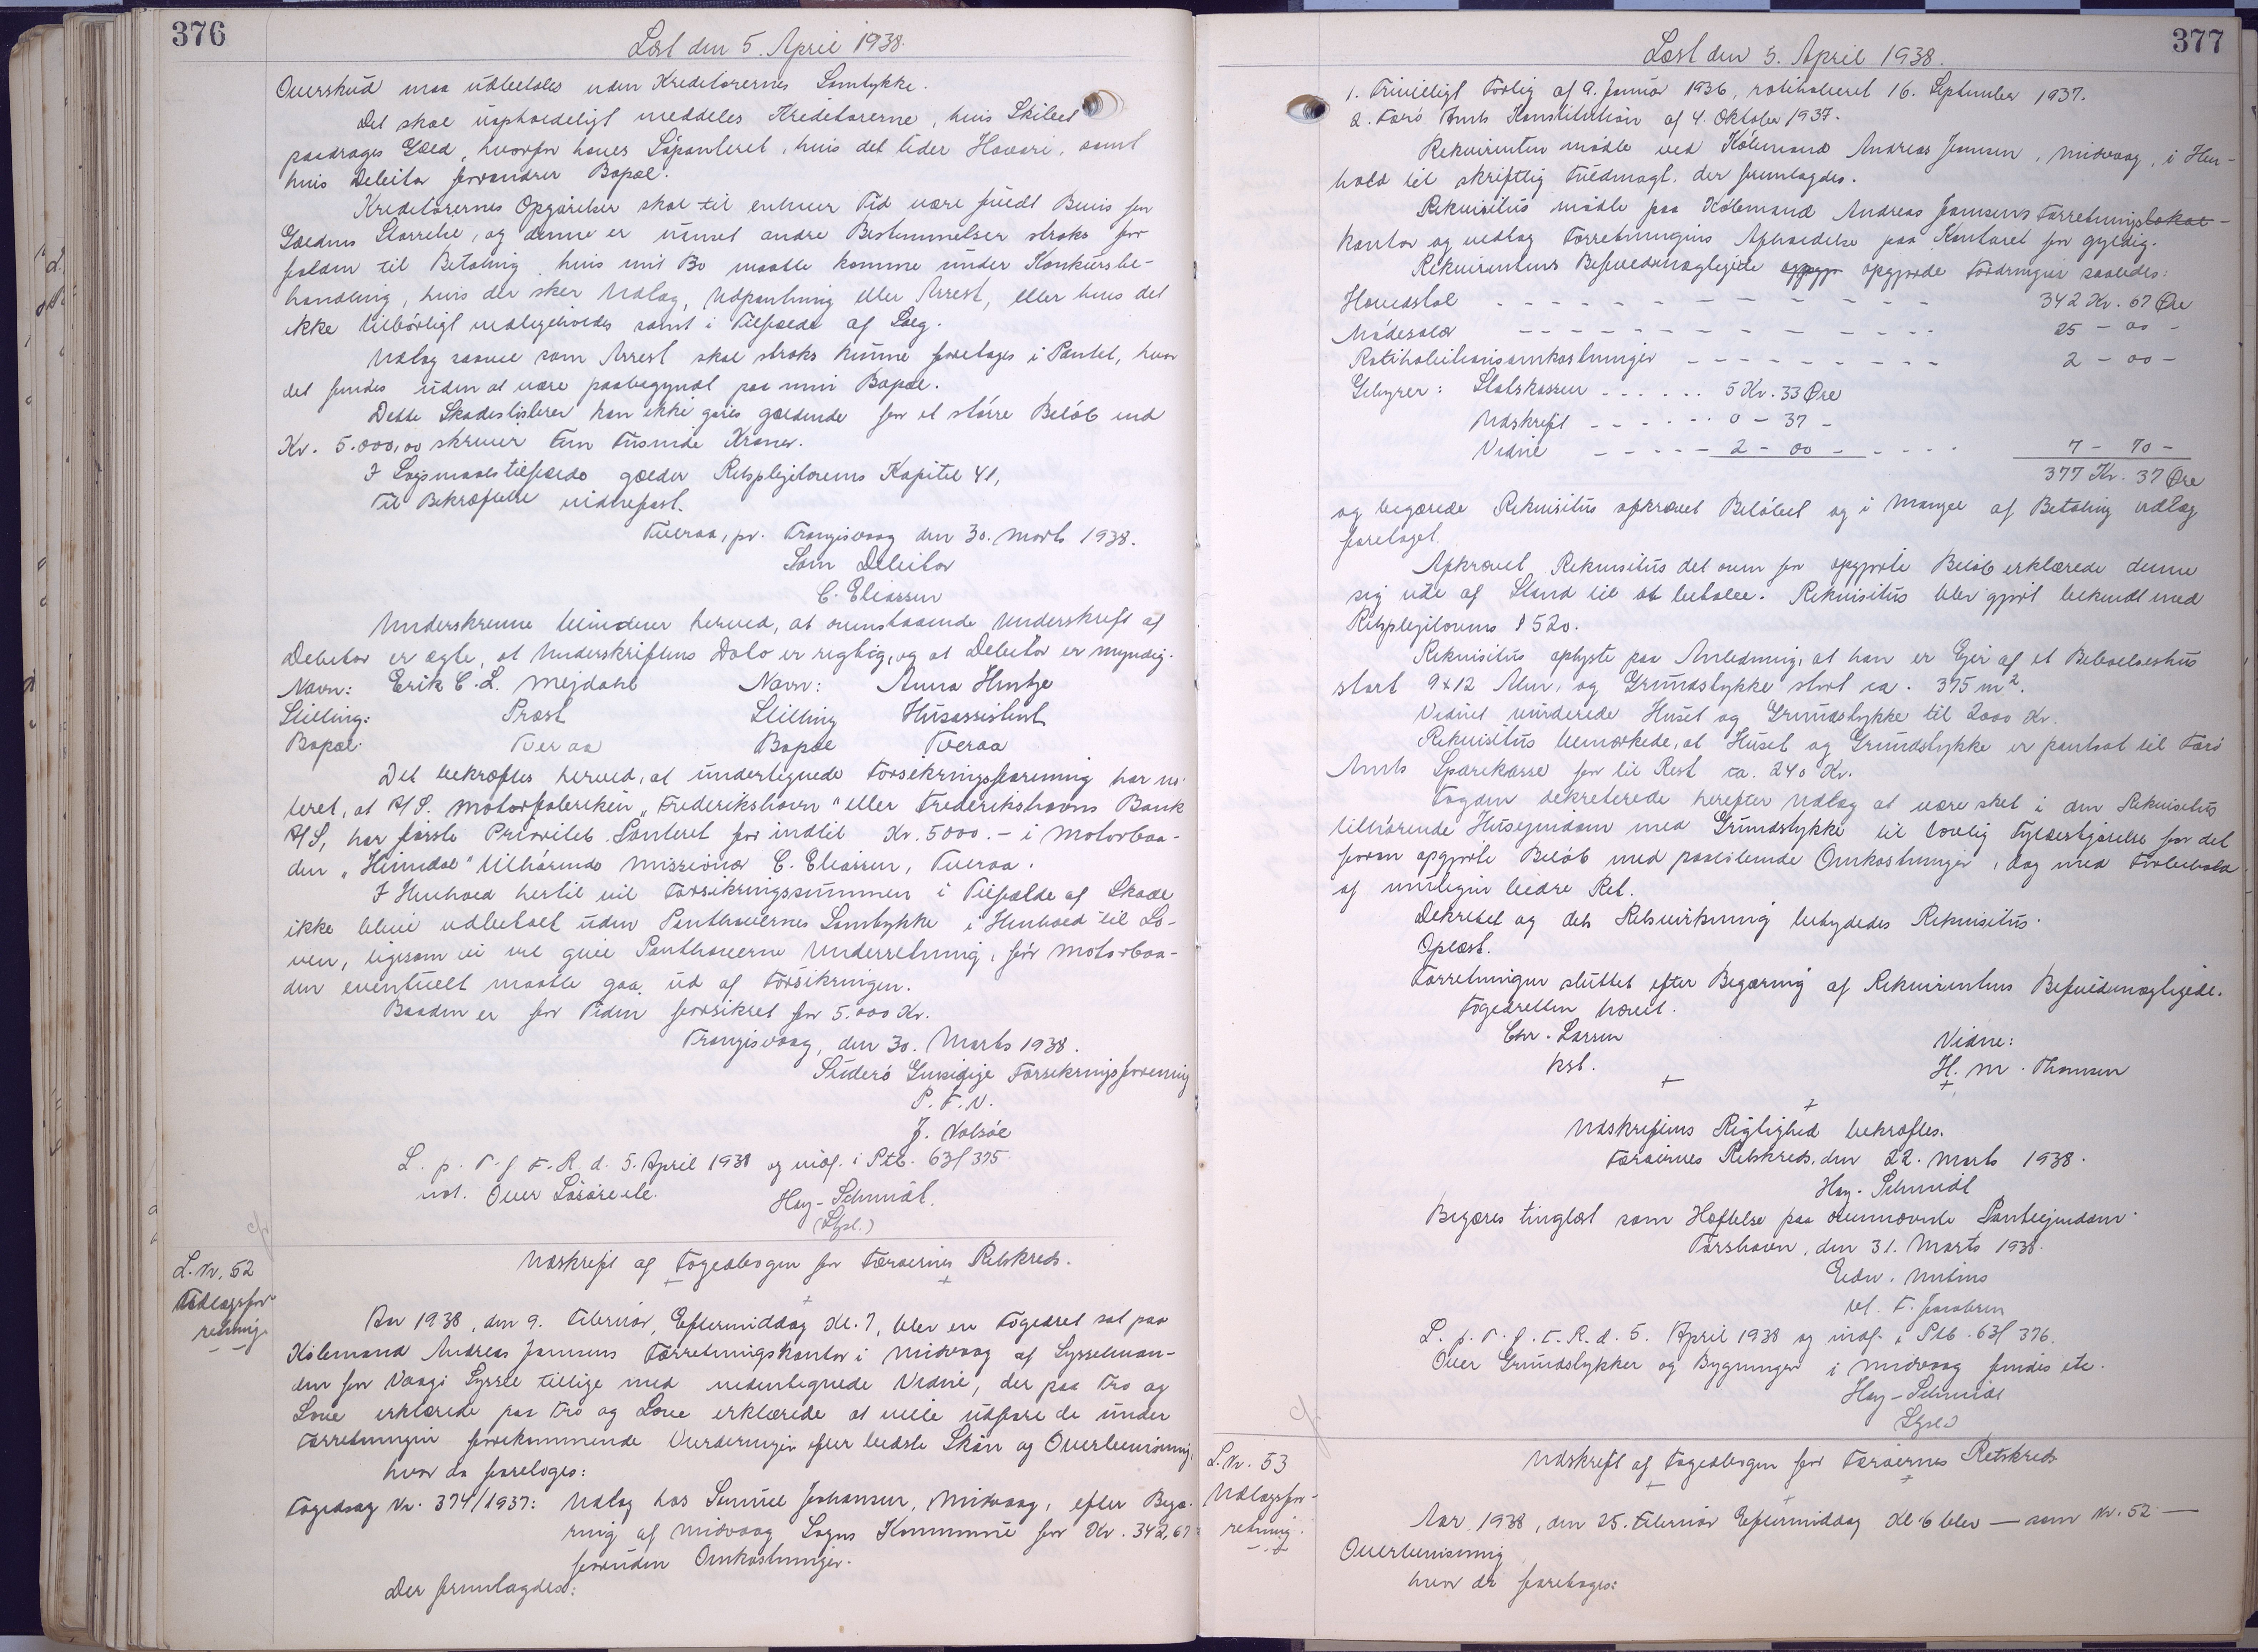 376
Læst den 5. April 1938.
Overskud maa udbetales uden Kreditorernes Samtykke.
Det skal uopholdeligt meddeles Kreditorerne, hvis Skibet
paadrages Gæld, hvorfor haves Søpanteret, hvis det lider Havari, samt
hvis Debitor forandrer Bopæl.
Kreditorernes Opgørelser skal til enhver Tid være fuldt Bevis for
Gældens Størrelse, og denne er uanset andre Bestemmelser straks for
falden til Betaling, hvis mit Bo maatte komme under Konkursbe-
handling, hvis der sker Udlæg, Udpantning eller Arrest, eller hvis det
ikke tilbørligt vedligeholdes samt i Tilfælde af Salg.
Udlæg saavel som Arrest skal straks kunne foretages i Pantet, hvor
det findes uden at være paabegyndt paa min Bopæl.
Dette Skadesløsbrev kan ikke gøres gældende for et større Beløb end
Kr. 5.000,00 skriver Fem Tusinde Kroner.
I Søgsmaalstilfælde gælder Retsplejelovens Kapitel 41.
Til Bekræftelse vidnefast.
Tveraa, pr. Trangisvaag den 30. Marts 1938.
Som Debitor
C. Eliassen
Underskrevne bevidner herved, at ovenstaaende Underskrift af
Debitor er ægte, at Underskriftens Dato er rigtig, og at Debitor er myndig.
Navn: Erik C. L. Mejdahl Navn: Anna Hentze
Stilling: Præst Stilling Husassistent
Bopæl: Tveraa Bopæl Tveraa
Det bekræftes herved, at undertegnede Forsikringsforening har no-
teret, at A/S. Motorfabriken "Frederikshavn" eller Frederikshavns Bank
A/S, har første Prioritets Panteret for indtil Kr. 5000.- i Motorbaa-
den "Heimdal" tilhørende Missionær C. Eliassen, Tveraa.
I Henhold hertil vil Forsikringssummen i Tilfælde af Skade
ikke blive udbetalt uden Panthavernes Samtykke i Henhold til Lo-
ven, ligesom vi vil give Panthaverne Underretning, før Motorbaa-
den eventuelt maatte gaa ud af Forsikringen.
Baaden er for Tiden forsikret for 5.000 Kr.
Trangisvaag, den 30. Marts 1938.
Suderø Gensidige Forsikringsforening
P. F. V.
J. Valsøe
L. p. T. f. F. R. d. 5. April 1938 og indf. i Ptb. 63f 375.
not. Over Løsøre etc.
Høy-Schmidt.
(Stpl.)
L. Nr. 52
Udlægsfor-
retning
Udskrift af Fogedbogen for Færøernes Retskreds.
Aar 1938, den 9. Februar, Eftermiddag Kl. 7, blev en Fogedret sat paa
Købmand Andreas Jensens Forretningskontor i Midvaag af Sysselman-
den for Vaagø Syssel tillige med undertegnede Vidne, der paa Tro og
Love erklærede paa Tro og Love erklærede at ville udføre de under
Forretningen forekommende Vurderinger efter bedste Skøn og Overbevisning,
hvor da foretoges:
Fogedsag Nr. 374/1937: Udlæg hos Samuel Johansen, Midvaag, efter Begæ-
ring af Midvaag Sogns Kommune for Kr. 342,67
foruden Omkostninger.
Der fremlagdes:
377
Læst den 5. April 1938.
1. Frivilligt Forlig af 9. Januar 1936, ratihaberet 16. September 1937.
2. Færø Amts Konstitution af 4. Oktober 1937.
Rekvirenten mødte ved Købmand Andreas Jensen, Midvaag, i Hen-
hold til skriftlig Fuldmagt, der fremlagdes.
Rekvisitus mødte paa Købmand Andreas Jensens Forretningslokal-
kontor og vedtog Forretningens Afholdelse paa Kontoret for gyldig.
Rekvirentens Befuldmægtigede opgjorde Fordringen saaledes:
Hovedstol - - - - - - - - - - - 342 Kr. 67 Øre
Mødesalær - - - - - - - - - - - 25 - 00 -
Ratihabitionsomkostninger - - - - - - - - 2 - 00 -
Gebyrer: Statskassen - - - - - - 5 Kr. 33 Øre
Udskrift - - - - - - 0 - 37 -
Vidne - - - - - 2 - 00 - - - - - 7 - 70 -
377 Kr. 37 Øre
og begærede Rekvisitus afkrævet Beløbet og i Mangel af Betaling Udlæg
foretaget.
Afkrævet Rekvisitus det oven for opgjorte Beløb erklærede denne
sig ude af Stand til at betale. Rekvisitus blev gjort bekendt med
Retsplejelovens § 520.
Rekvisitus oplyste paa Anledning, at han er Ejer af et Beboelseshus
stort 9x12 Alen, og Grundstykke stort ca. 375 m².
Vidnet vurderede Huset og Grundstykke til 2000 Kr.
Rekvisitus bemærkede, at Huset og Grundstykke er pantsat til Færø
Amts Sparekasse for til Rest ca. 240 Kr.
Fogden dekreterede herefter Udlæg at være sket i den Rekvisitus
tilhørende Husejendom med Grundstykke til lovlig Fyldestgørelse for det
foran opgjorte Beløb med paaløbende Omkostninger, dog med Forbehold
af muligen bedre Ret.
Dekretet og dets Retsvirkning betydedes Rekvisitus.
Oplæst.
Forretningen sluttet efter Begæring af Rekvirentens Befuldmægtigede.
Fogedretten hævet.
Chr. Larsen
kst.
Vidne:
H. M. Thomsen
Udskriftens Rigtighed bekræftes.
Færøernes Retskreds, den 22. Marts 1938.
Høy-Schmidt
Begæres tinglæst som Hæftelse paa ovennævnte Panteejendom.
Tórshavn, den 31. Marts 1938.
Edw. Mitens
ved F. Jacobsen
L. p. T. f. F. R. d. 5. April 1938 og indf. i Ptb. 63f 376.
Over Grundstykker og Bygninger i Midvaag findes etc.
Høy-Schmidt
Stpl.
L. Nr. 53
Udlægsfor-
retning.
Udskrift af Fogedbogen for Færøernes Retskreds
Aar 1938, den 25. Februar Eftermiddag Kl. 6 blev — som Nr. 52 —
Overbevisning
hvor da foretoges: